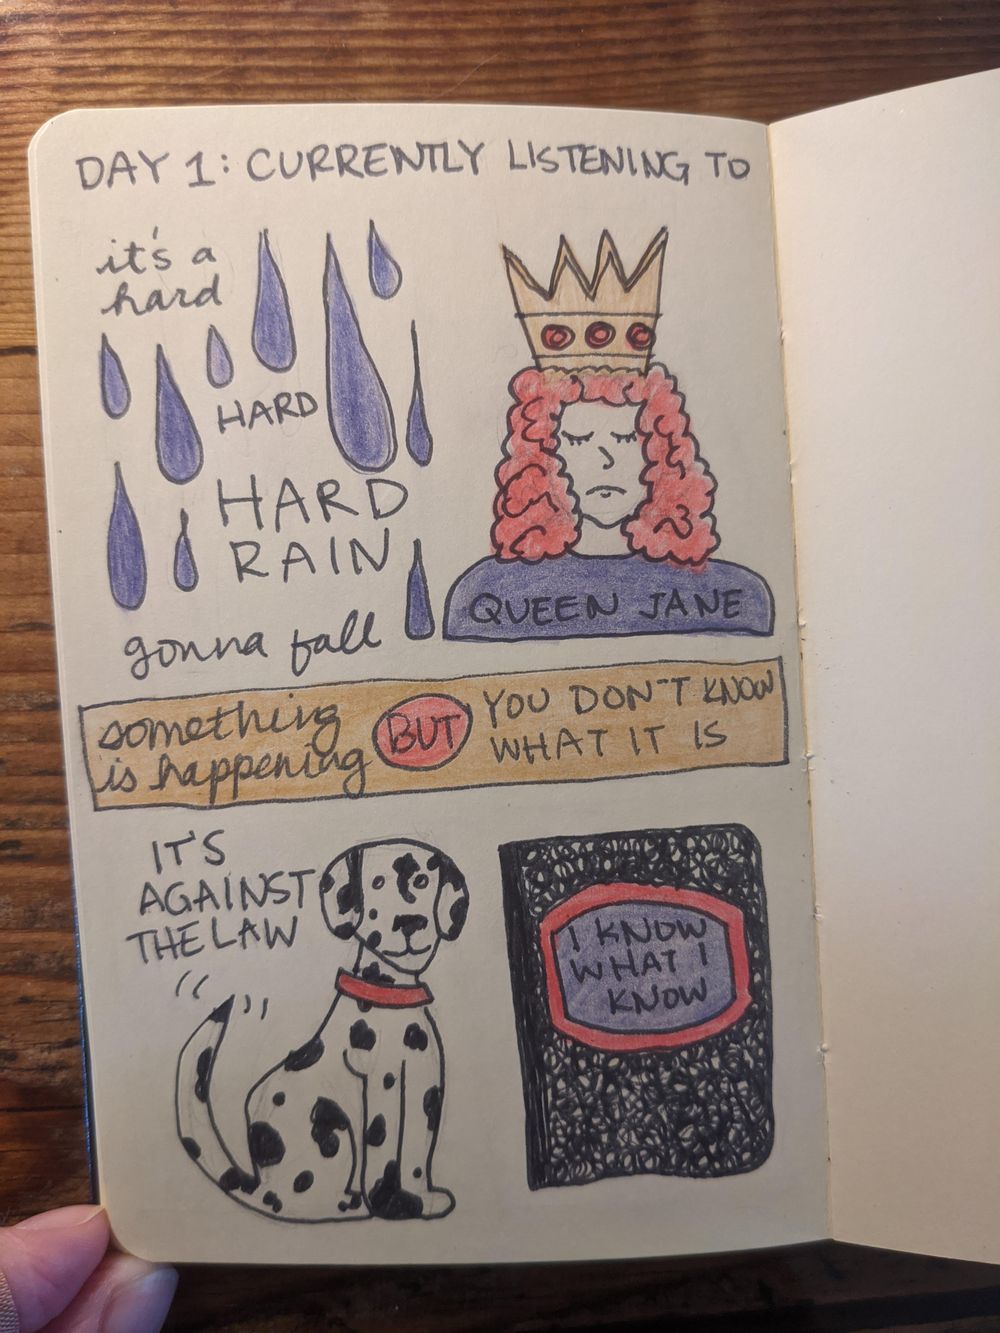 DAY 1: CURRENTLY LISTENING TO
it's a
hard
HARD
HARD
RAIN
gonna fall
QUEEN JANE
something
is happening
BUT
YOU DON'T KNOW
WHAT IT IS
IT'S
AGAINST
THE LAW
I KNOW
WHAT I
KNOW